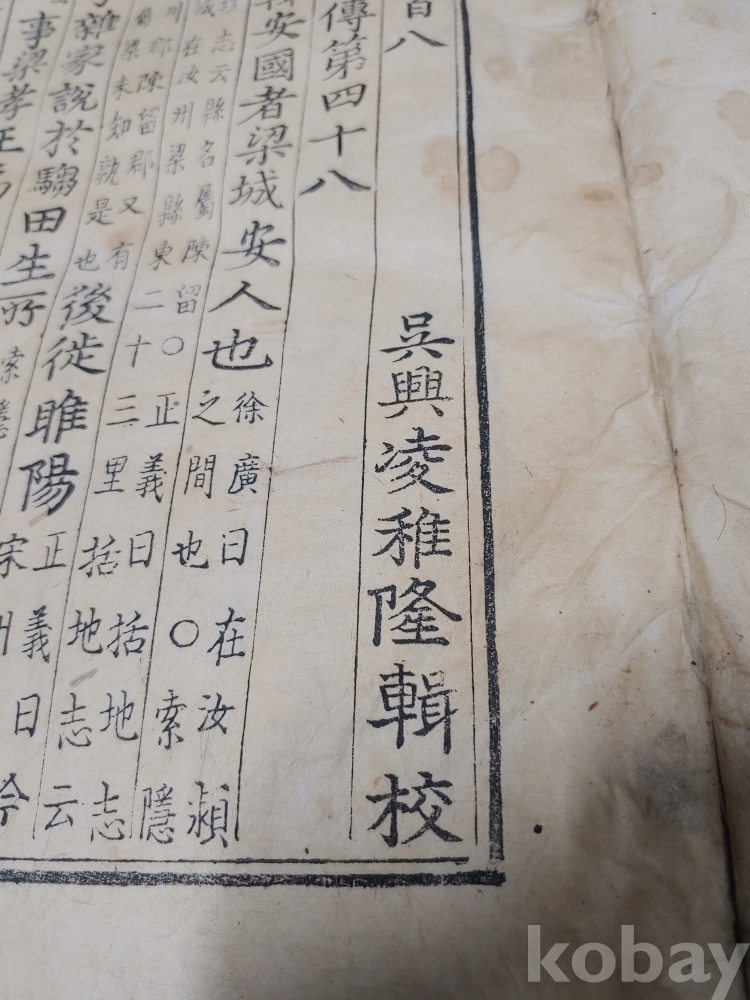 百八　吳興凌稚隆輯校
傳第四十八
安國者梁城安人也
徐廣曰在汝潁
之間也○索隱
志云縣名屬陳留○正義曰括地志
城在汝州梁縣東二十三里括地志云
州郡陳留郡又有
梁未知孰是也
後徙睢陽
正義曰今
宋州
雜家說於騶田生所
索隱
事梁孝王為
kobay